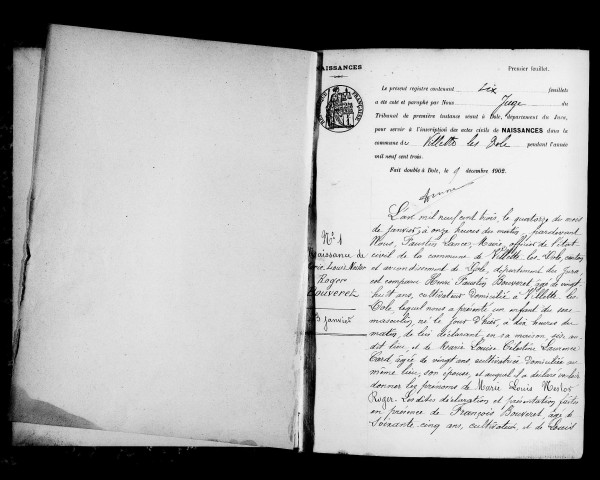 NAISSANCES
Premier feuillet.
Le présent registre contenant six feuillets
a été coté et paraphé par Nous Juge du
Tribunal de première instance séant à Dole, département du Jura,
pour servir à l'inscription des actes civils de NAISSANCES dans la
commune de Villette les Dole pendant l'année
mil neuf cent trois.
Fait double à Dole, le 9 décembre 1902.
N° 1
Naissance de
Marie, Louis Nestor
Roger
Bouveret
13 janvier
L'an mil neuf cent trois, le quatorze du mois
de janvier, à onze heures du matin, pardevant
Nous, Faustin Lance, Maire, officier de l'état
civil de la commune de Villette-les-Dole, canton
et arrondissement de Dole, département du Jura,
est comparu Henri Faustin Bouveret, âgé de vingt
huit ans, cultivateur domicilié à Villette-les-
Dole, lequel nous a présenté un enfant du sexe
masculin, né le jour d'hier, à dix heures du
matin, de lui déclarant, en sa maison, sise au
dit lieu, et de Marie Louise Célestine Laurence
Card âgée de vingt ans, cultivatrice domiciliée au
même lieu, son épouse, et auquel il a déclaré vouloir
donner les prénoms de Marie Louis Nestor
Roger. Les dites déclaration et présentation faites
en présence de François Bouveret, âgé de
soixante cinq ans, cultivateur, et de Louis